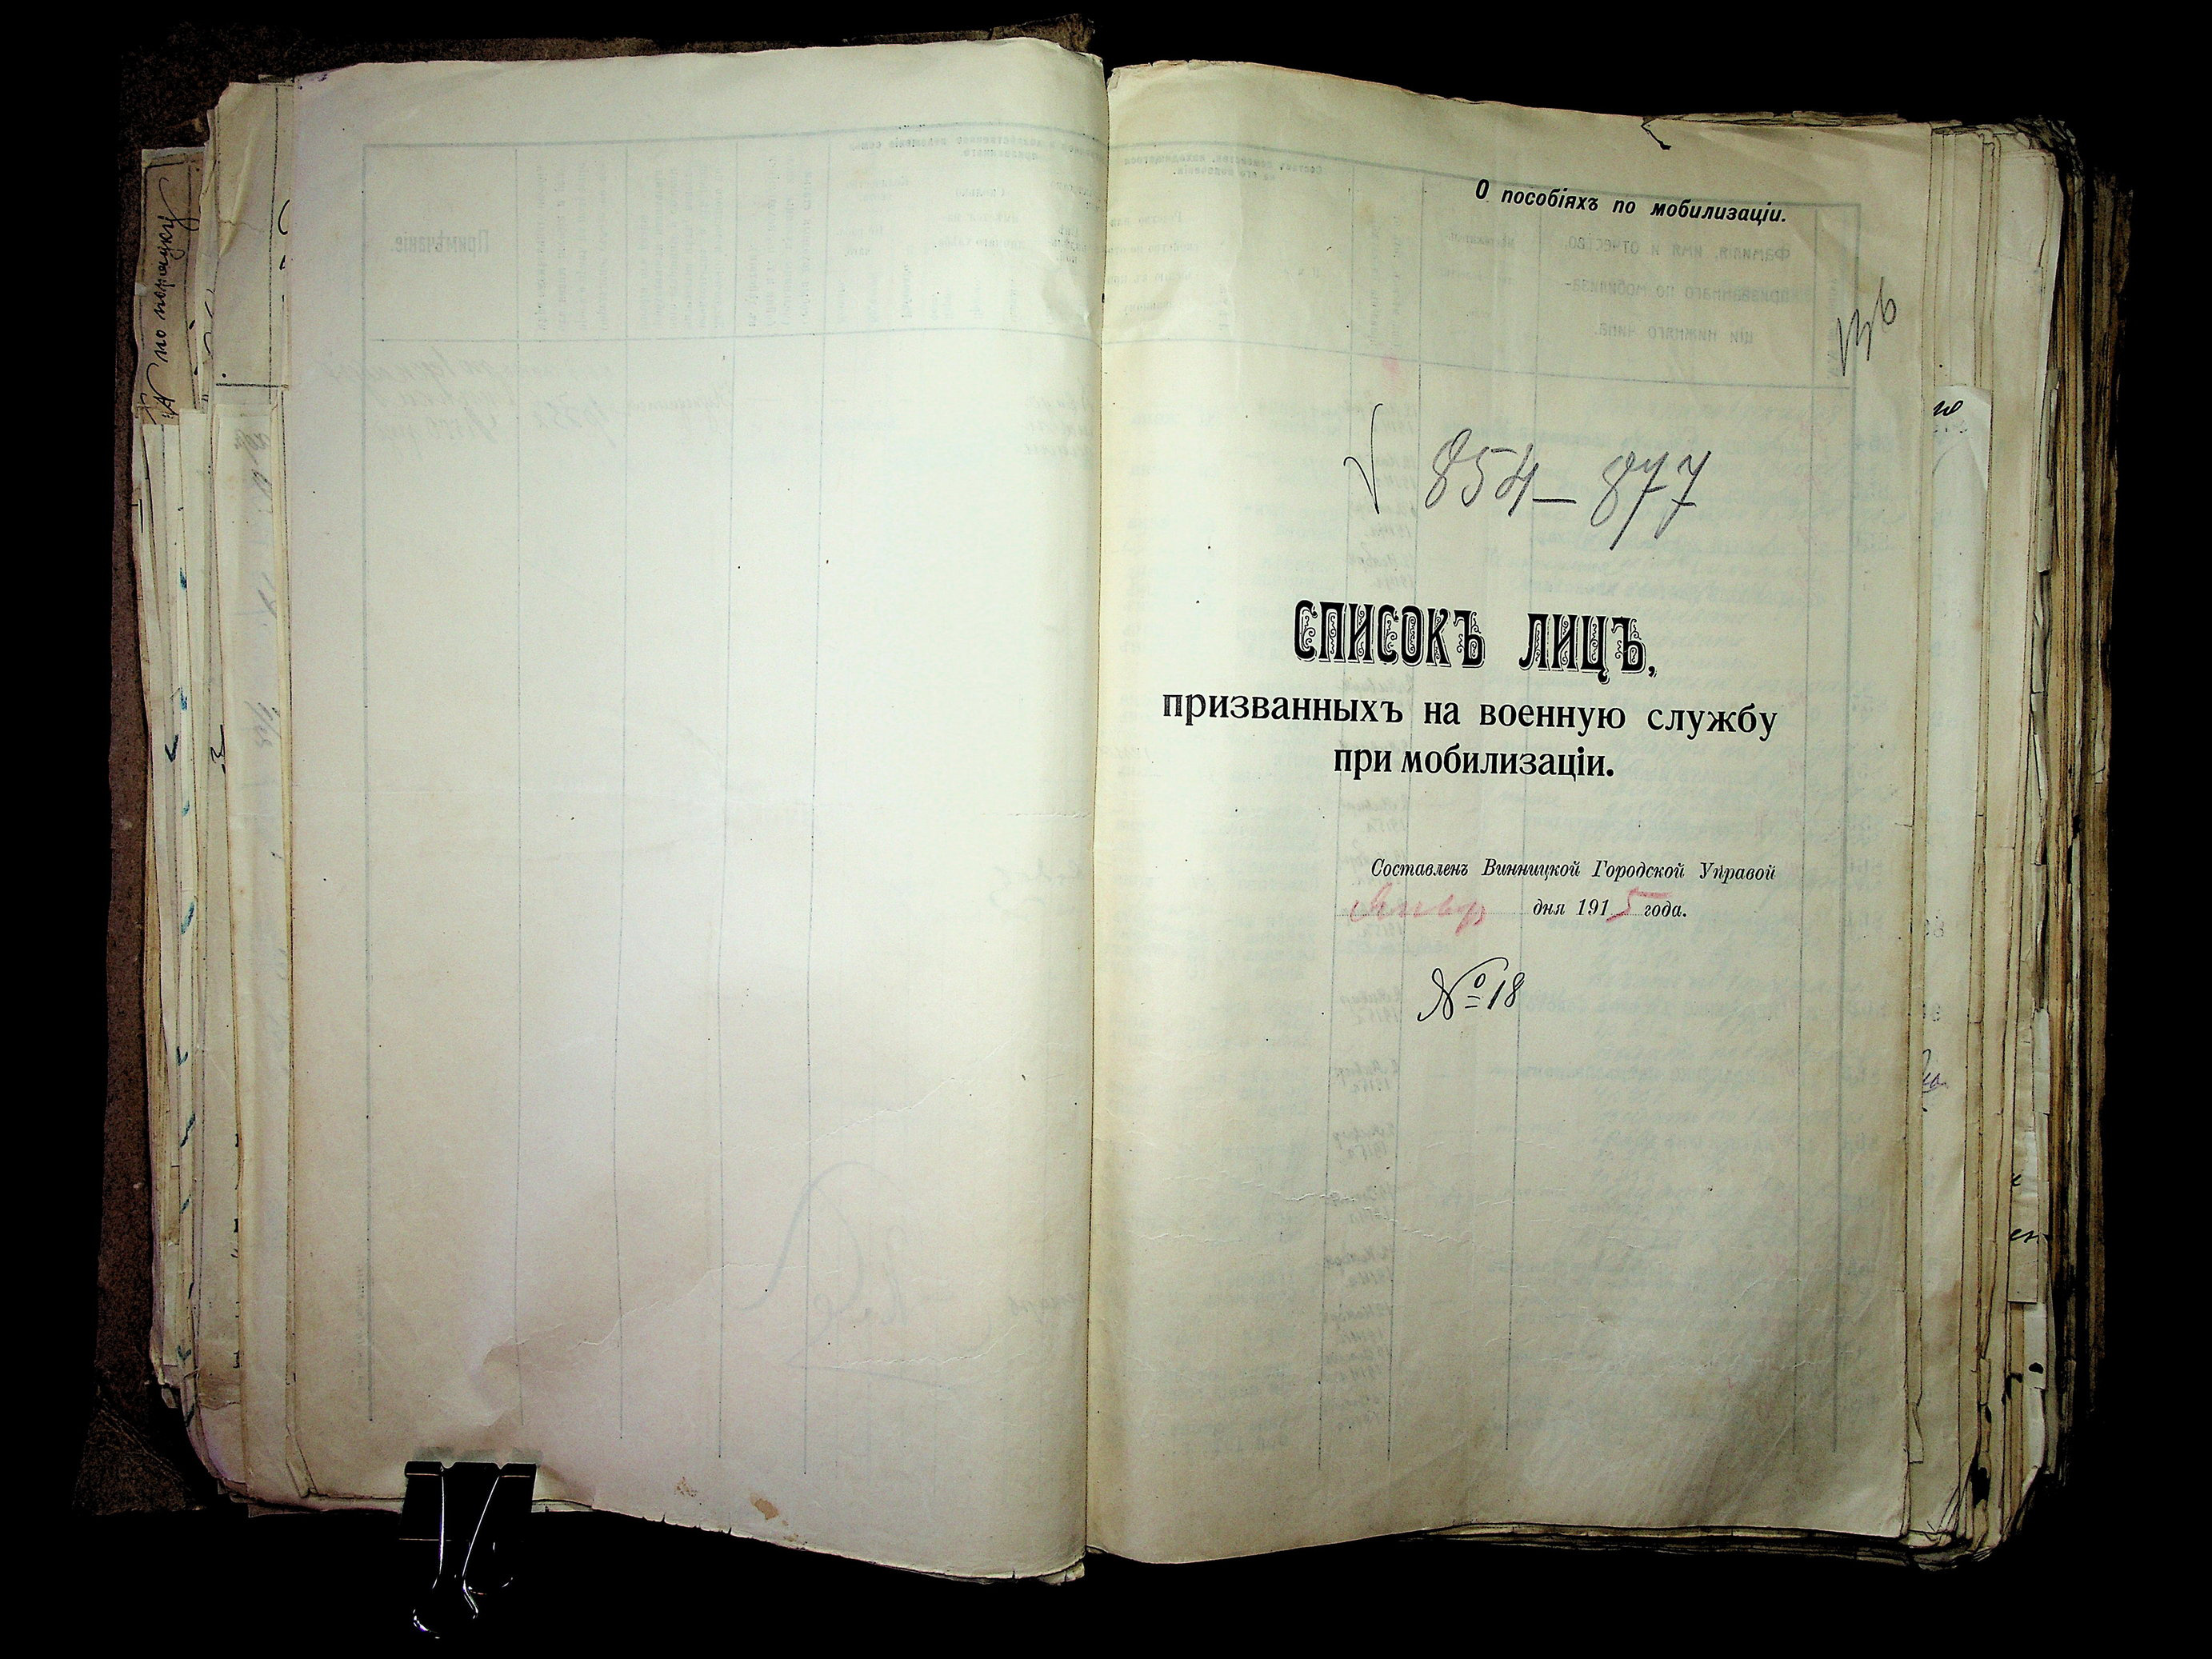 № по порядку
О пособіяхъ по мобилизаціи.
√ 854 — 877
СПИСОКЪ ЛИЦЪ,
призванныхъ на военную службу
при мобилизаціи.
Составленъ Винницкой Городской Управой
Январ дня 1915 года.
№ 18